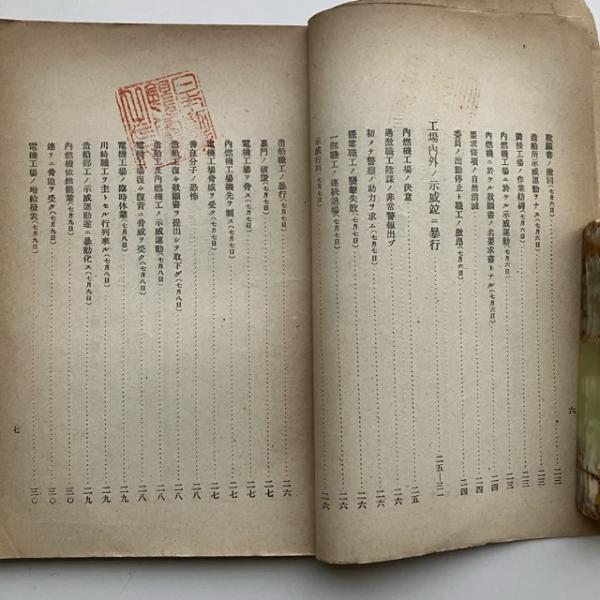 歎願書ノ撤囘(七月六日)……二三
造船所示威運動ヲナス(七月六日)……二三
隣接工場ノ作業妨碍(七月六日)……二三
内燃機工場ニ於ケル示威運動(七月六日)……二三
内燃機ニ於ケル歎願書ノ名要求書トナル(七月六日)……二四
要求條項ノ自然消滅……二四
委員ノ出勤停止ト職工ノ激昂(七月六日)……二四
工場內外ノ示威竝ニ暴行……二五―三一
內燃機工場ノ決意……二五
過激職工陰謀ノ非常警報出ヅ……二六
初メテ警察ノ助力ヲ求ム(七月七日)……二六
罷業職工ノ襲擊失敗(七月七日)……二六
一部職工ノ連袂退場(七月七日)……二六
示威行列(七月七日)……二六
六
造船職工ノ暴行(七月七日)……二六
裏門ノ破壞(七月七日)……二七
電機工場ヲ脅ス(七月七日)……二七
內燃機工場機先ヲ制ス(七月七日)……二七
電機工場脅威ヲ受ク(七月八日)……二七
善良分子ノ恐怖……二八
造船工復々歎願書ヲ提出シヲ取下グ(七月八日)……二八
造船工及內燃機工ノ示威運動(七月八日)……二八
電機工場復々腹背ニ脅威ヲ受ク(七月八日)……二八
電機工場ノ臨時休業(七月八日)……二九
川崎職工ヲ主トセル行列來ル(七月八日)……二九
造船部工ノ示威運動遂ニ暴動化ス(七月九日)……二九
內燃機依然罷業(七月九日)……三〇
連リニ脅迫ヲ受ク(七月九日)……三〇
電機工場ノ增給發表(七月九日)……三〇
七